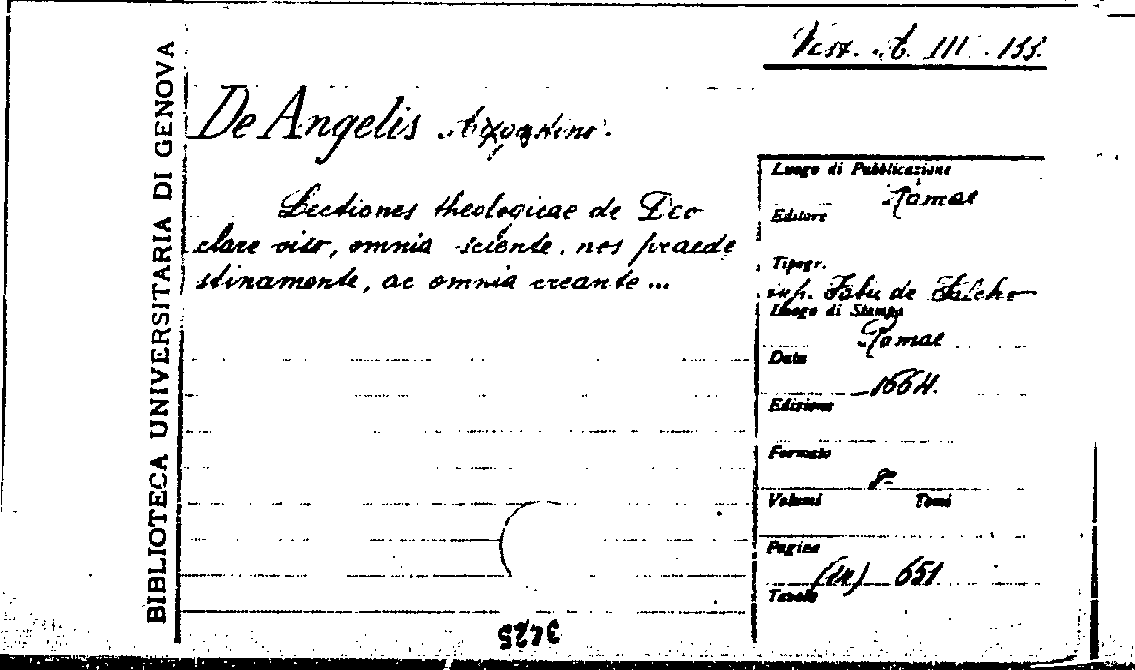 BIBLIOTECA UNIVERSITARIA DI GENOVA
Vest. A. III. 133.
De Angelis Agostino.
Lectiones theologicae de Deo
clare viso, omnia sciente, nos praede
stinamente, ac omnia creante ...
Luogo di Pubblicazione
Romae
Editore
Tipogr.
de Falcho
Luogo di Stampa
Romae
Data
1664.
Edizione
Formato
8°
Volumi Tomi
Pagine
651
Tavole
3425